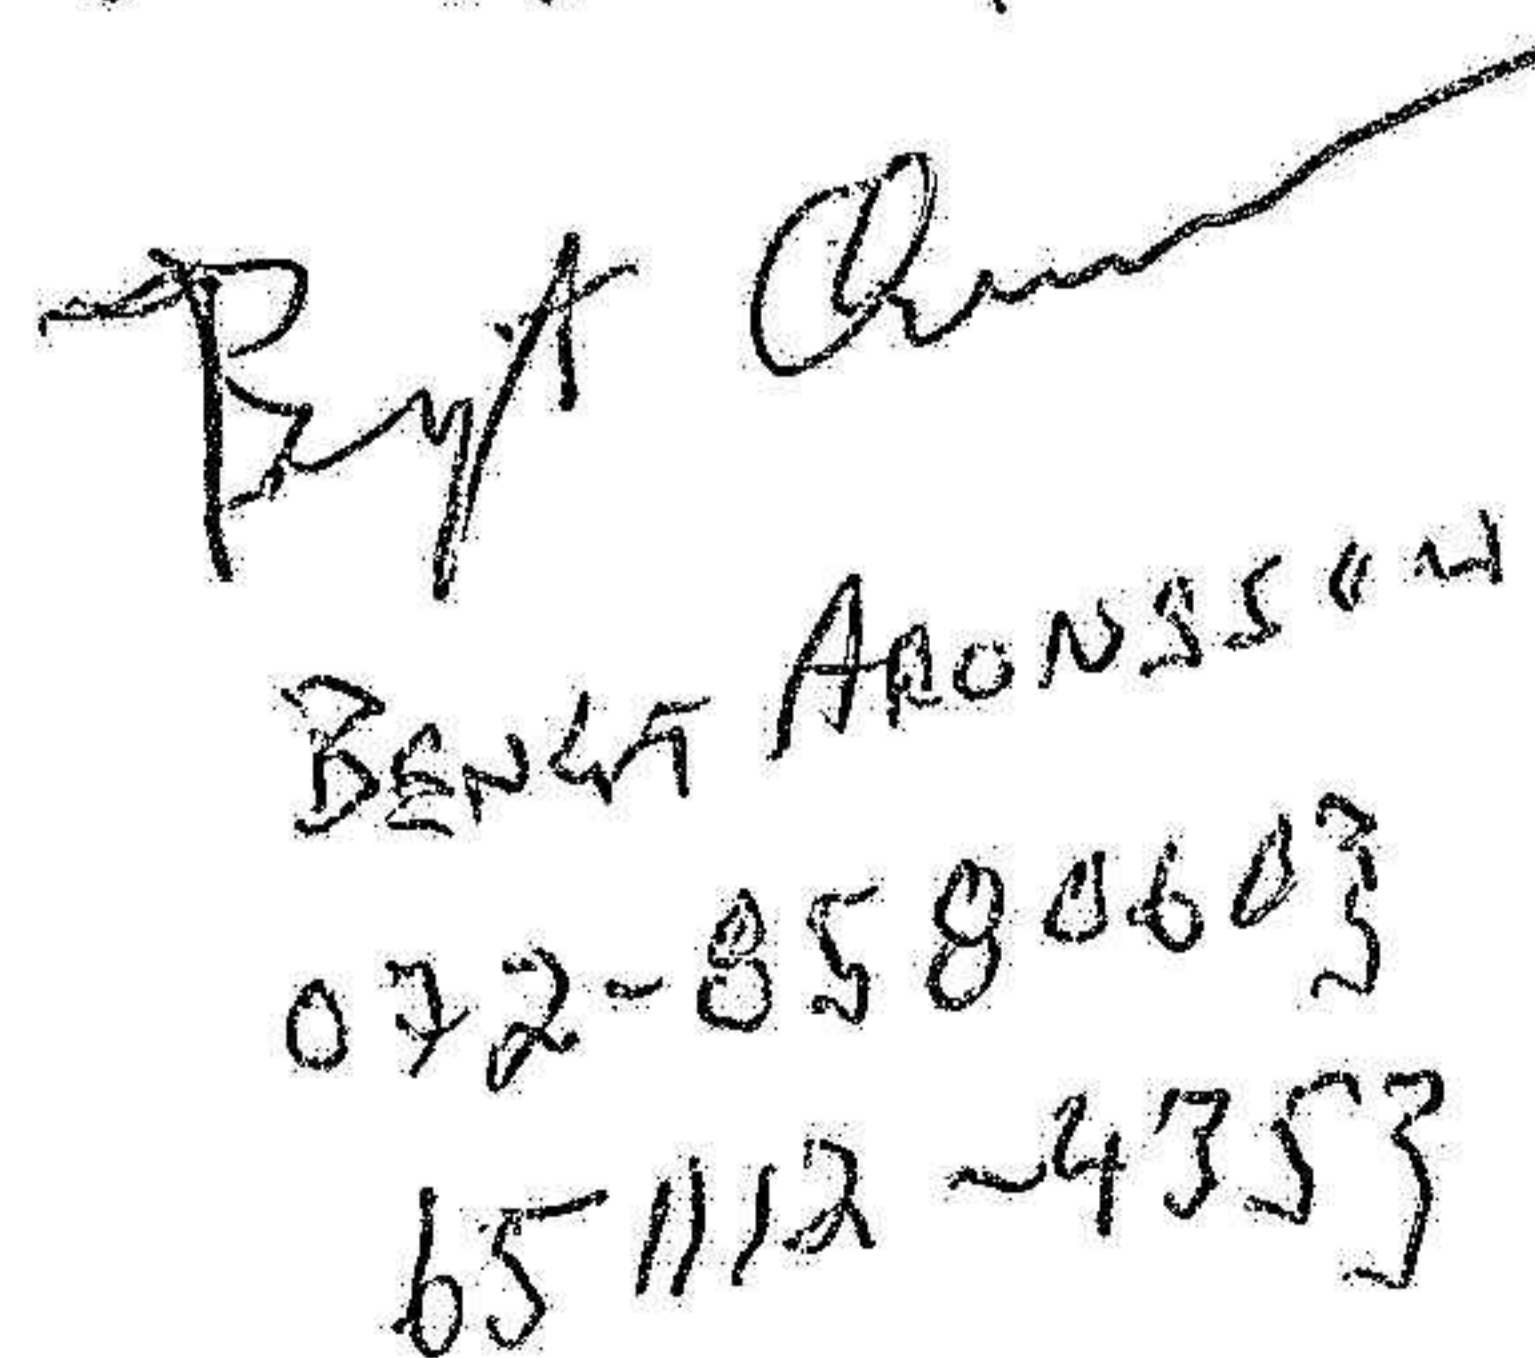 Bengt
BENGT ARONSSON
072-8580603
651112-4353